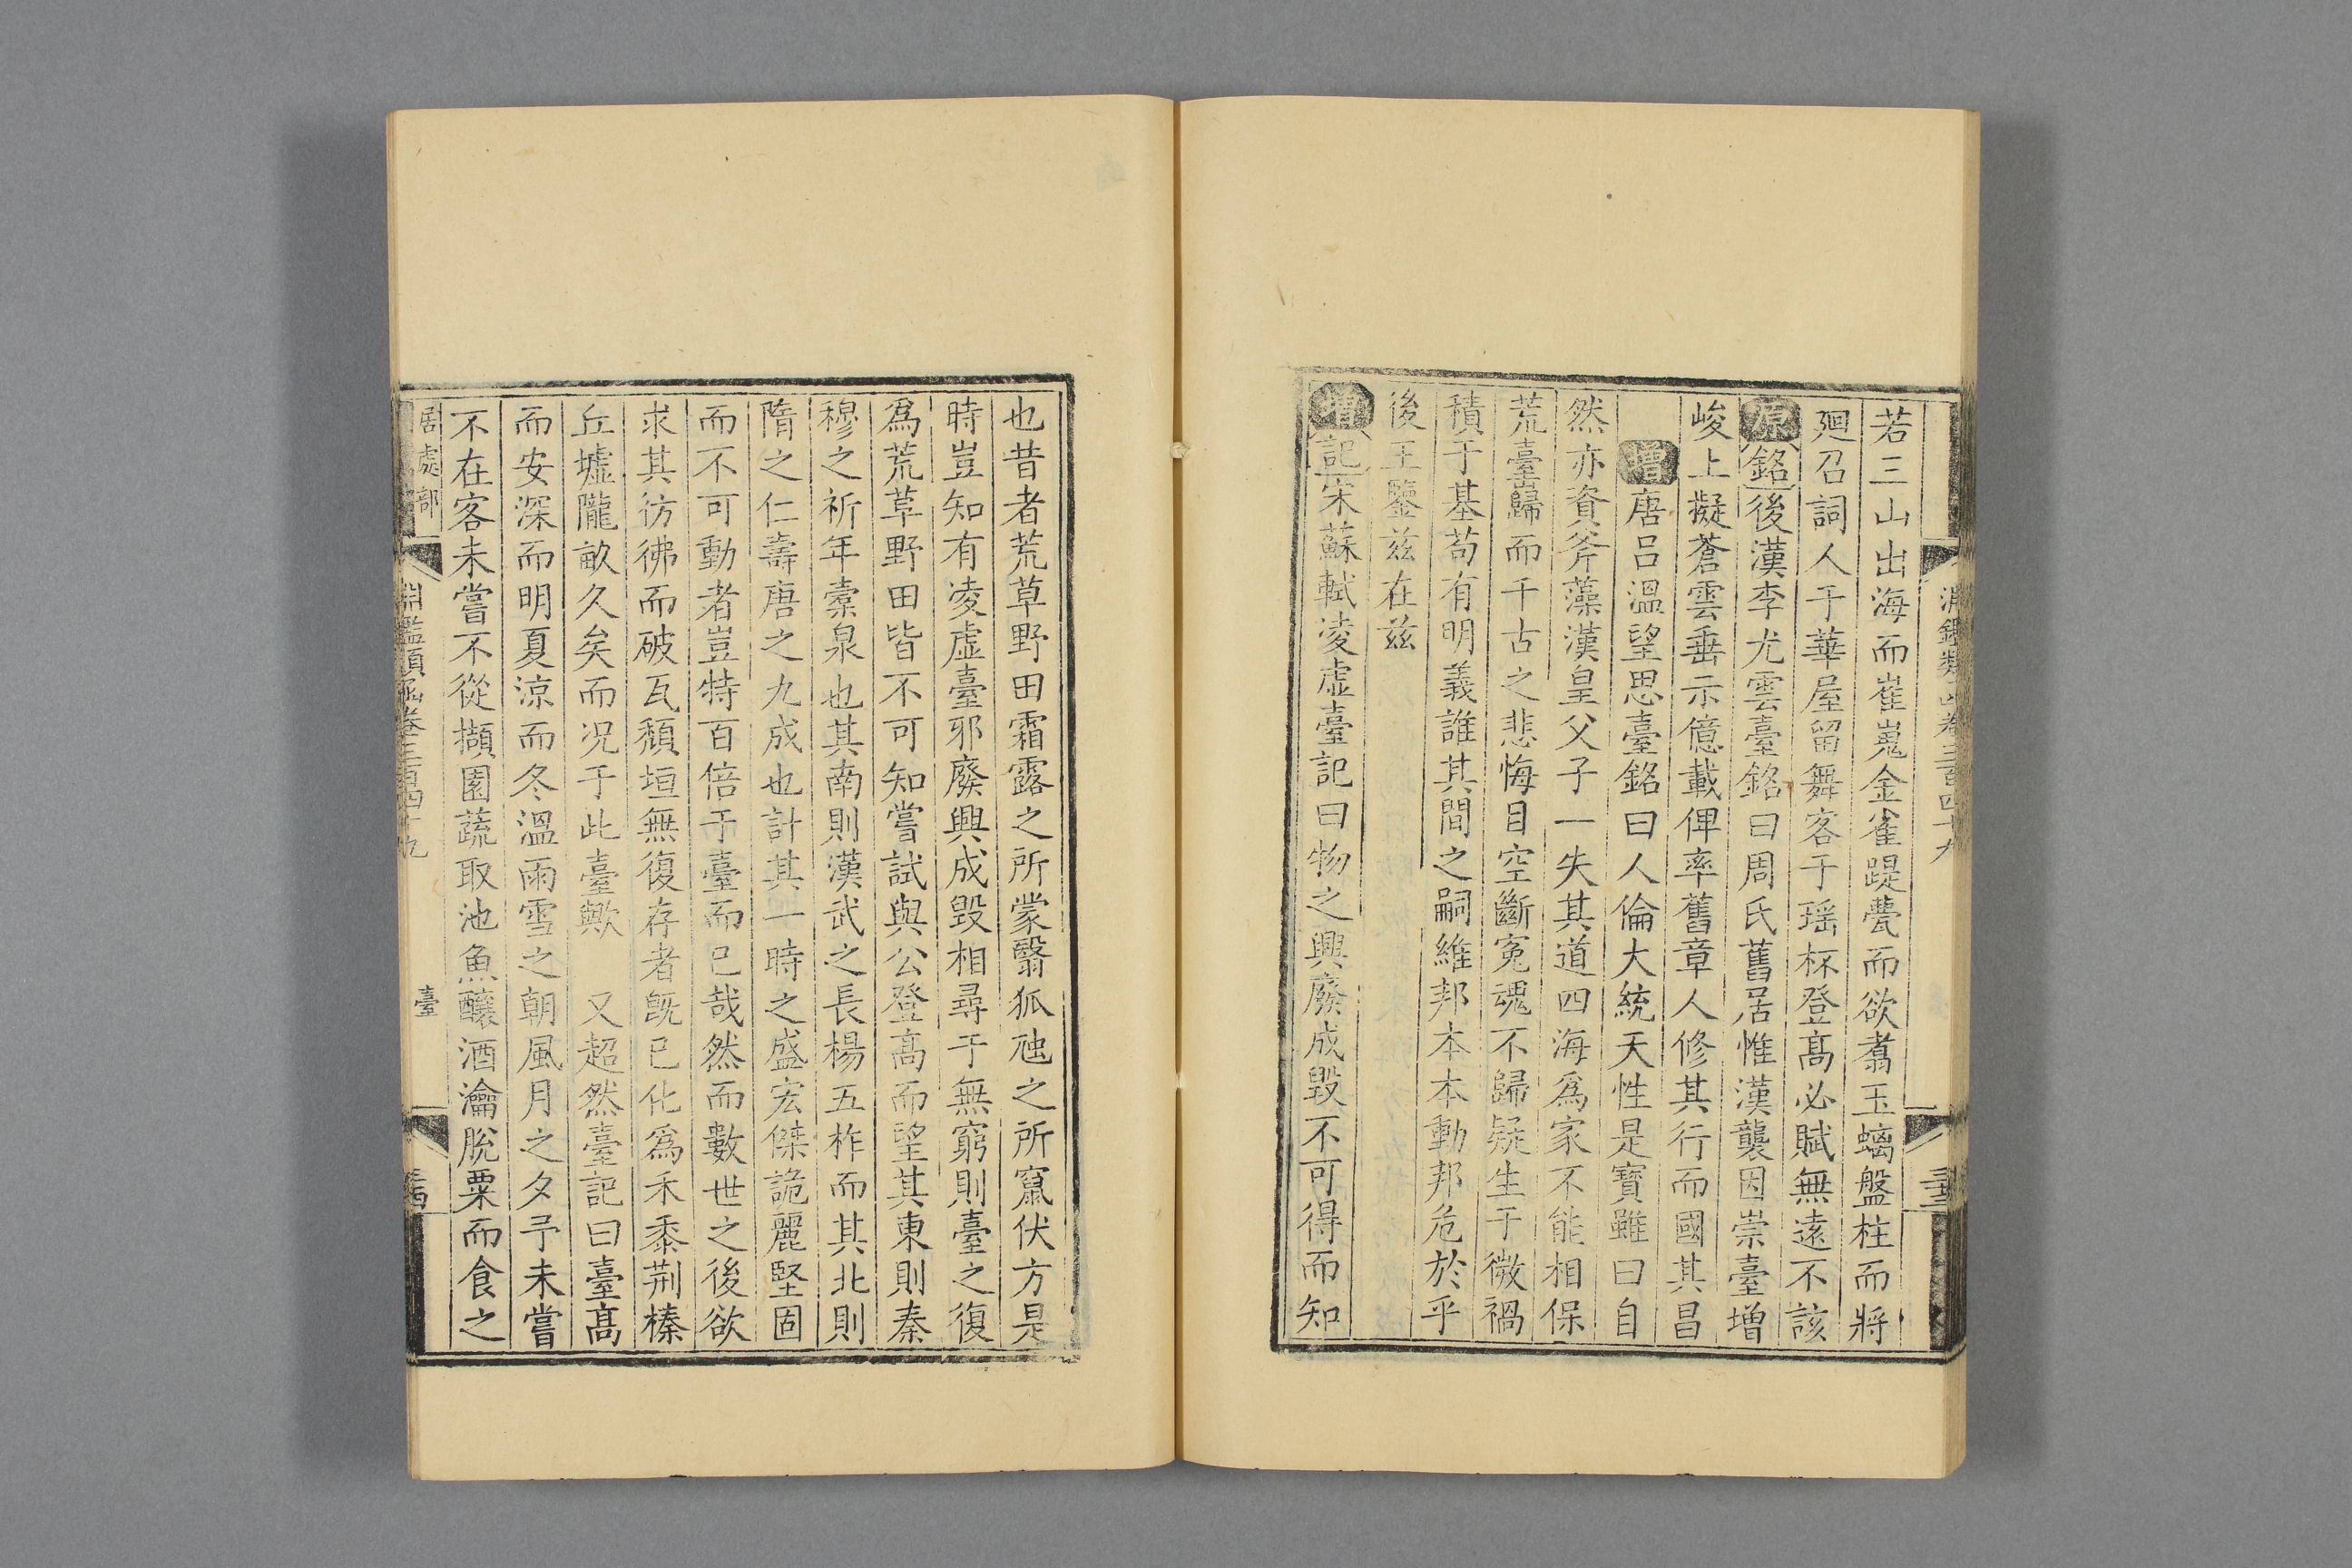 淵鑑類函卷三百四十九
若三山出海而崔嵬金雀踶甍而欲翥玉螭盤柱而將
廻召詞人于華屋留舞客于瑶杯登髙必賦無遠不該
原銘後漢李尤雲臺銘曰周氏舊居惟漢襲因崇臺增
峻上擬蒼雲垂示億載俾率舊章人修其行而國其昌
增唐吕溫望思臺銘曰人倫大統天性是寶雖曰自
然亦資斧藻漢皇父子一失其道四海爲家不能相保
荒臺歸而千古之悲悔目空斷寃魂不歸疑生于微禍
積于基苟有明義誰其間之嗣維邦本本動邦危於乎
後王鑒兹在兹
增記宋蘇軾凌虚臺記曰物之興廢成毀不可得而知
也昔者荒草野田霜露之所蒙翳狐虺之所竄伏方是
時豈知有凌虚臺邪廢興成毀相尋于無窮則臺之復
爲荒草野田皆不可知嘗試與公登髙而望其東則秦
穆之祈年槖泉也其南則漢武之長楊五柞而其北則
隋之仁壽唐之九成也計其一時之盛宏傑詭麗堅固
而不可動者豈特百倍于臺而已哉然而數世之後欲
求其彷彿而破瓦頽垣無復存者旣已化爲禾黍荆榛
丘墟隴畝久矣而况于此臺歟 又超然臺記曰臺髙
而安深而明夏涼而冬溫雨雪之朝風月之夕予未嘗
不在客未嘗不從擷園蔬取池魚釀酒瀹脫粟而食之
居處部 淵鑑類函卷三百四十九 臺